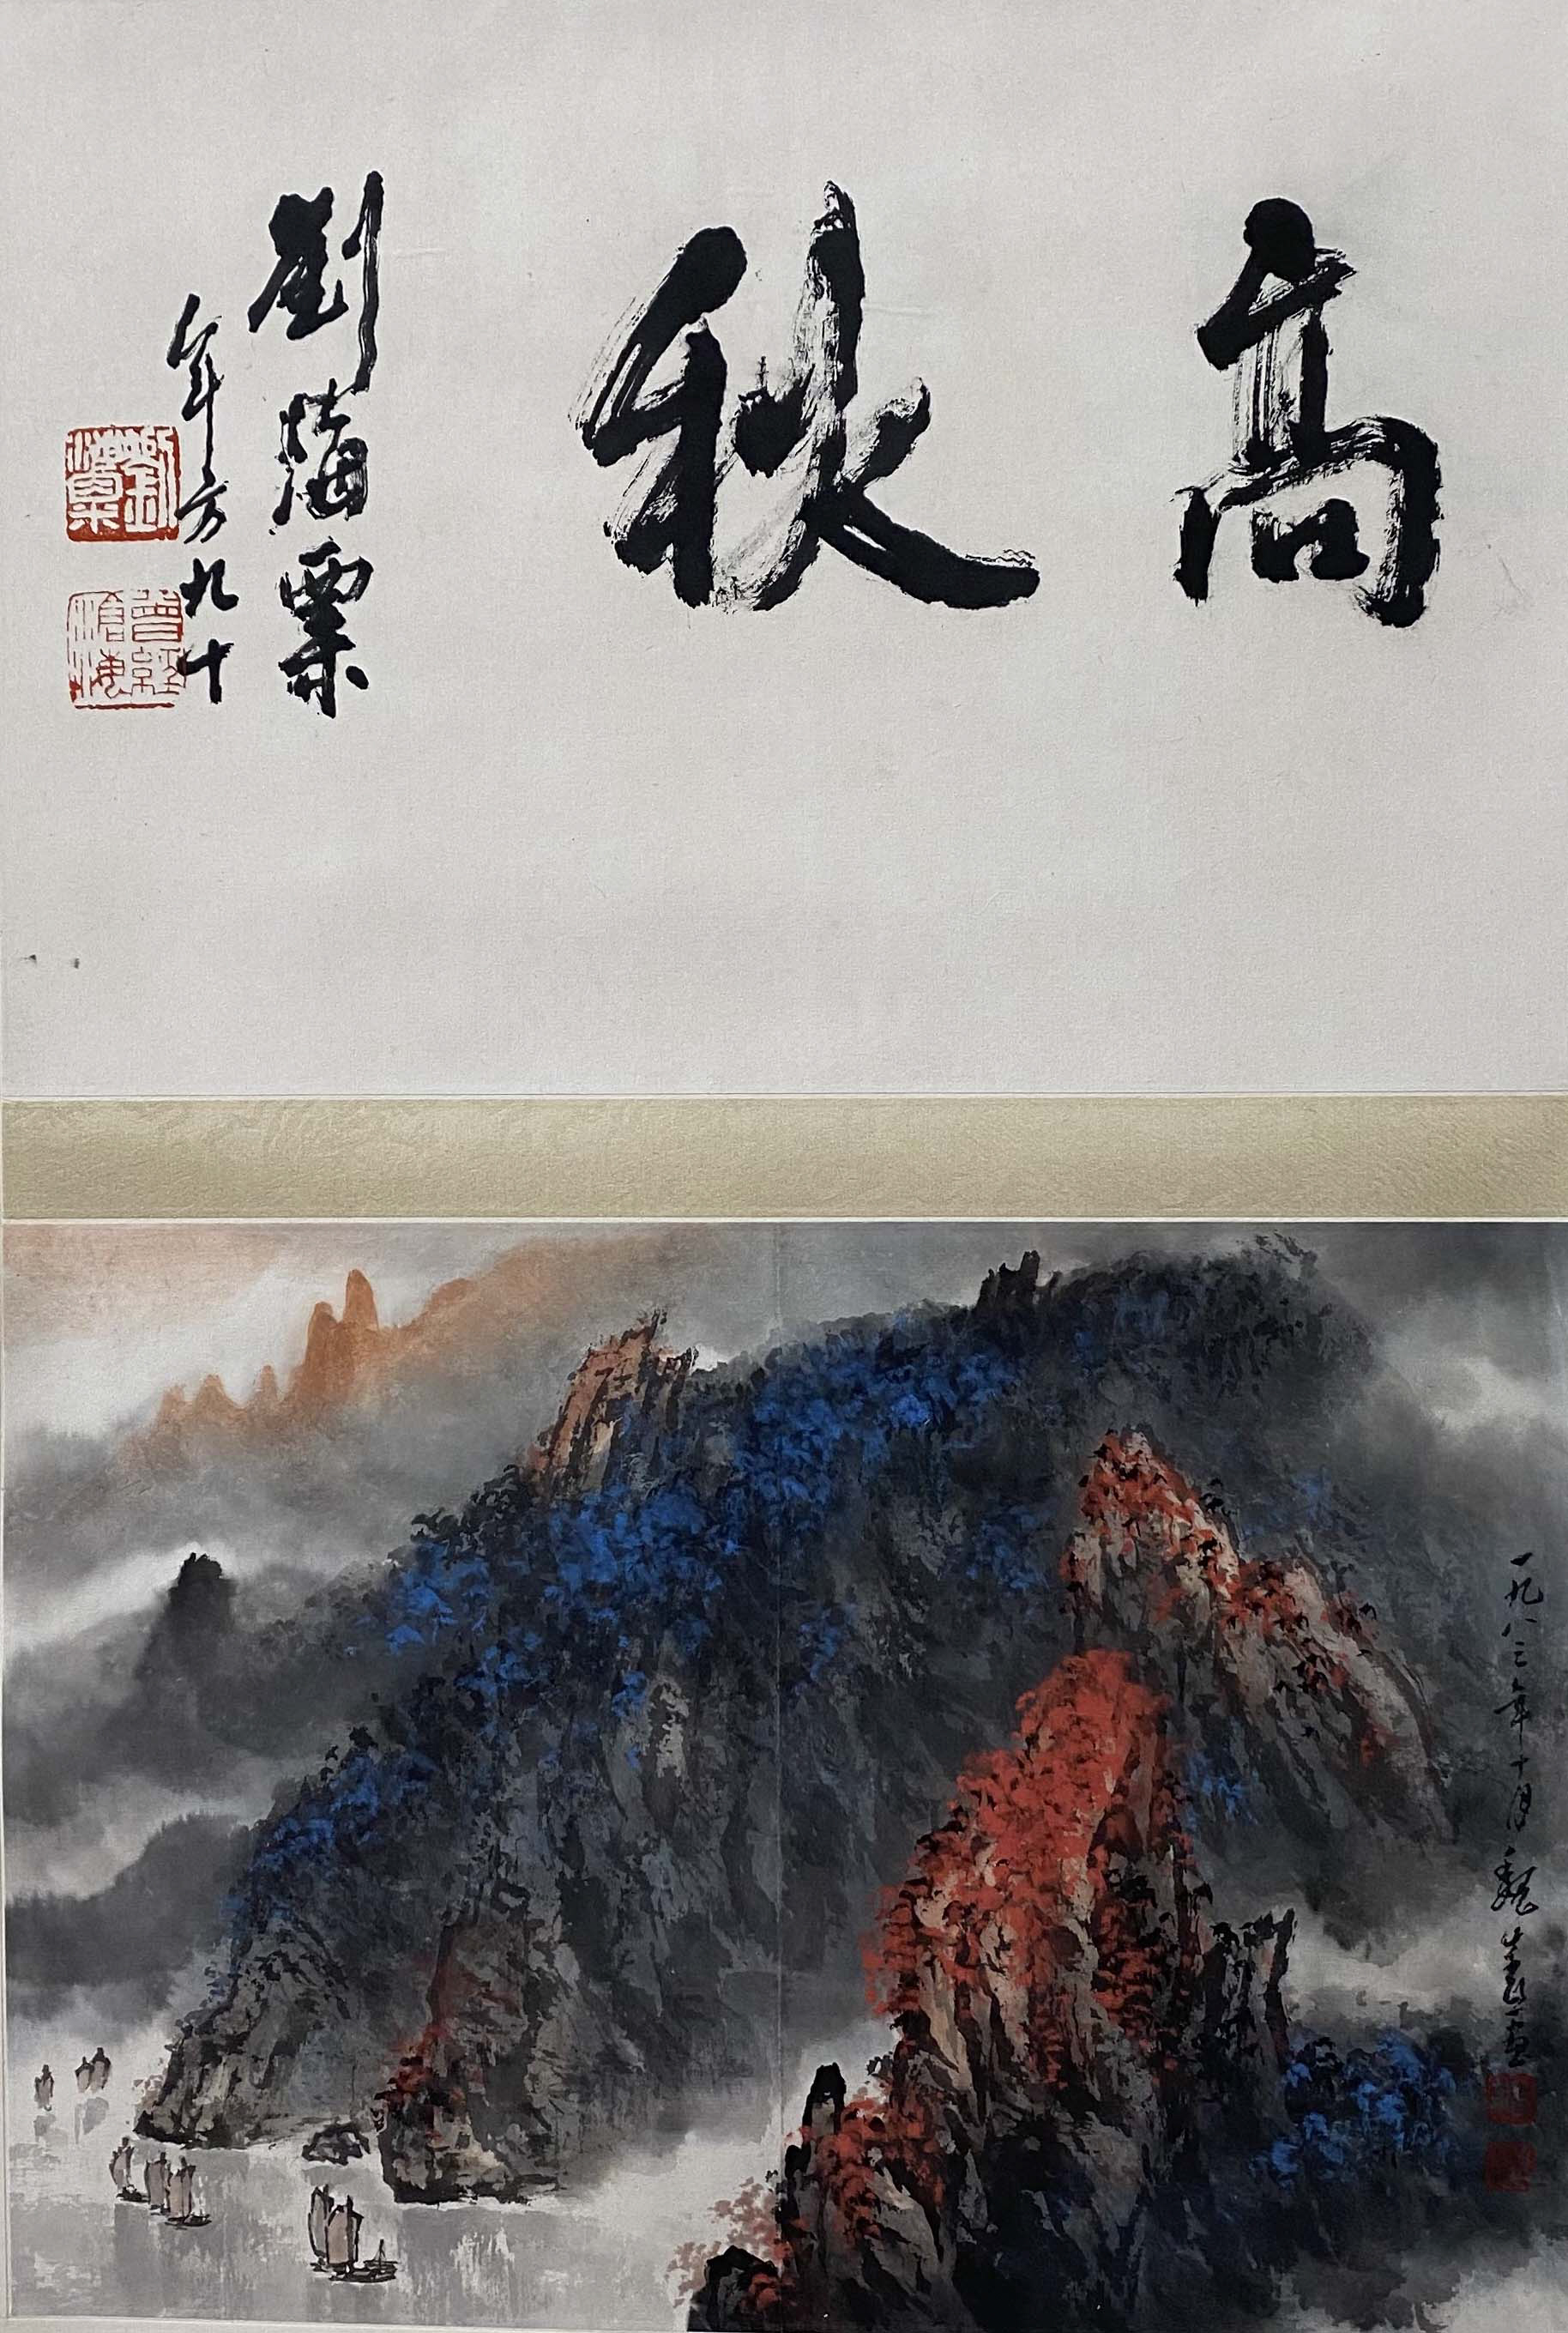 高秋
劉海粟
年方九十
劉海粟
曾經滄海
一九八三年十月魏